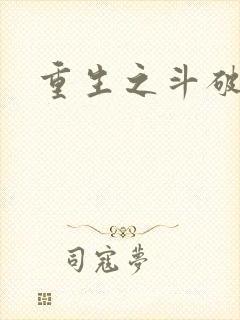 重生之斗破
司寇夢